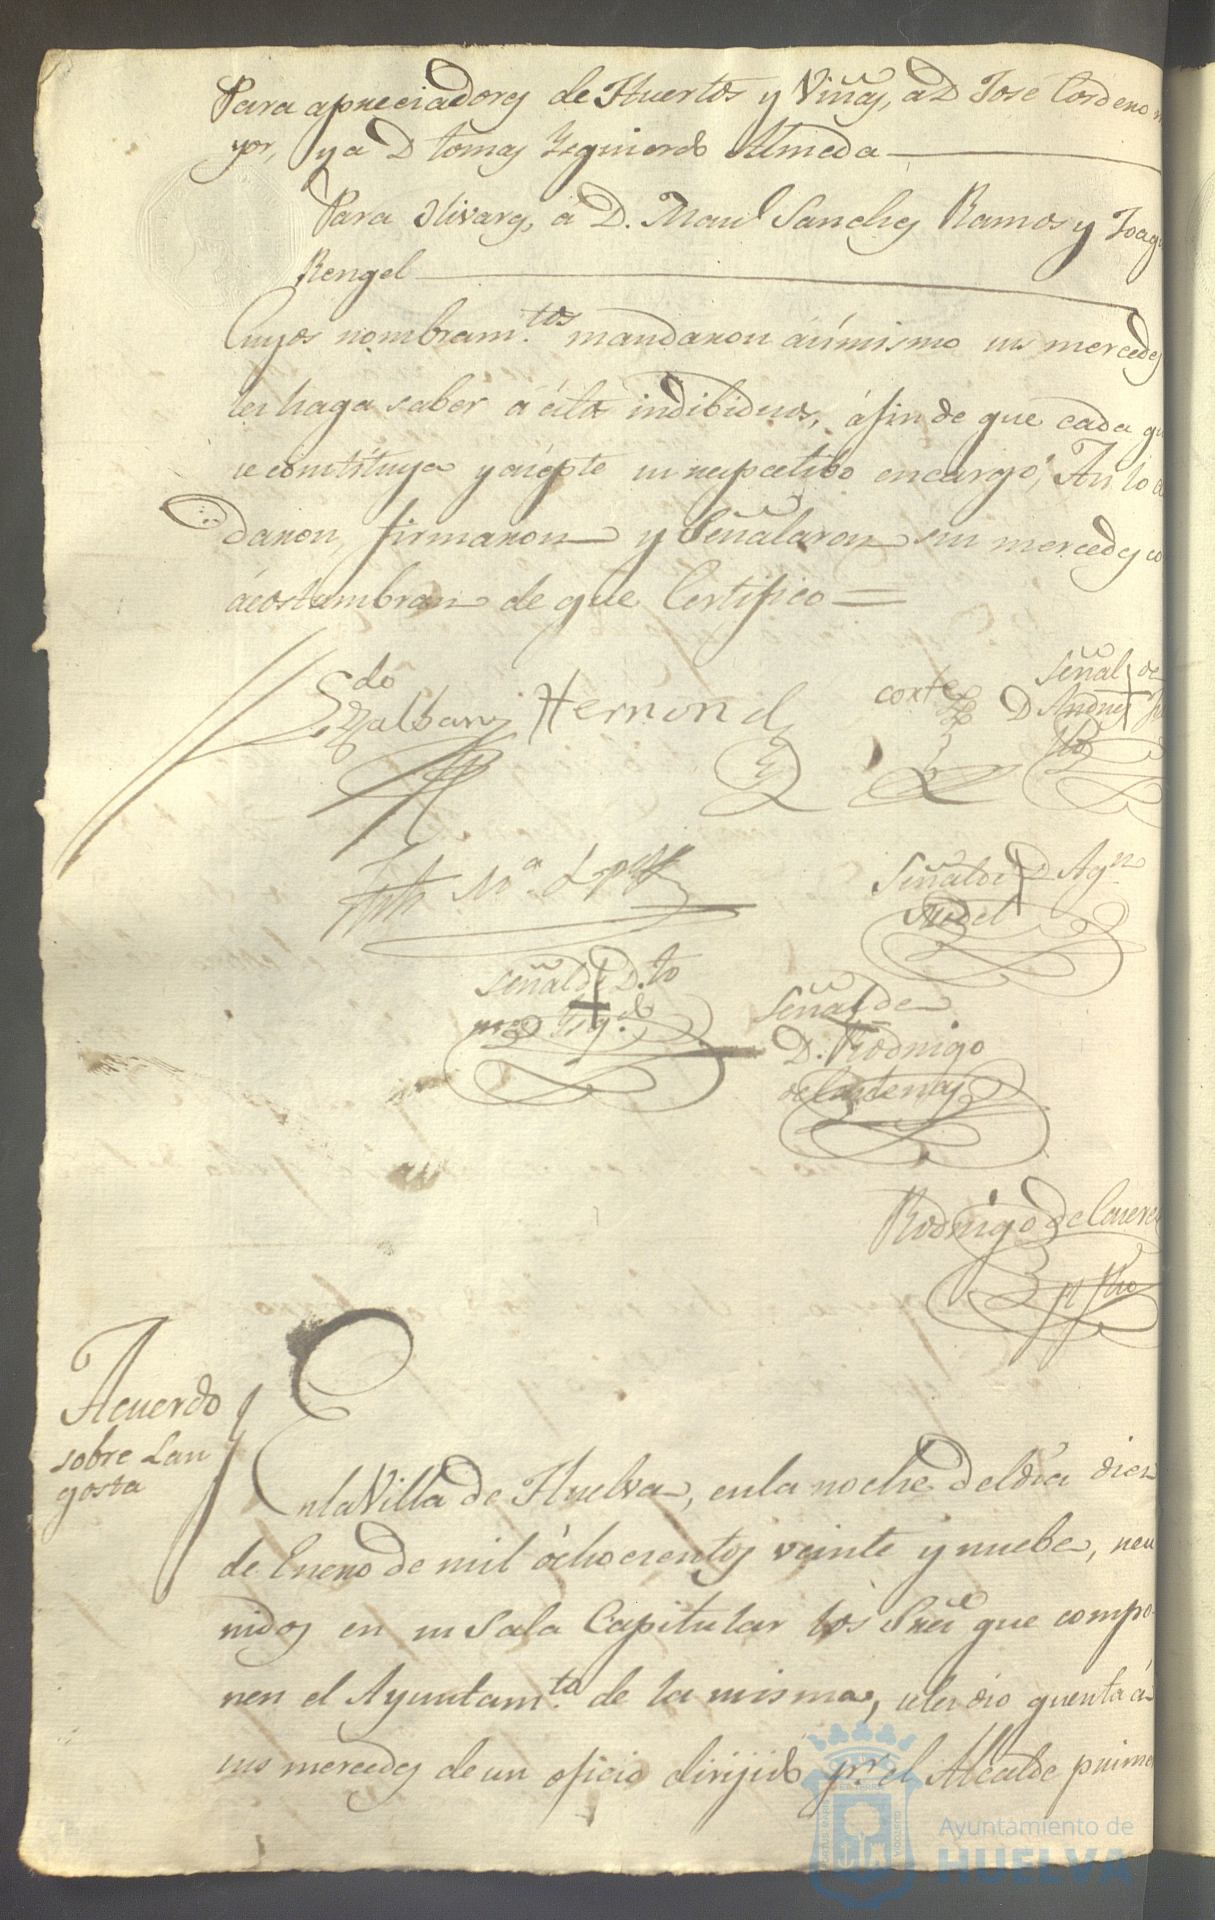 Para apreciadores de Huertos y Viñas, a D Jose Cordero m
yor, y a D tomas Yzquierdo Almeda
Para Olivares, a D. Manl Sanches Ramos y Joaq
Rengel
Cuyos nombramtos mandaron asimismo sus mercedes
les haga saber a estos indibiduos, áfin de que cada qu
se constituya y acepte su respectibo encargo; Asi lo a
daron, firmaron y Señalaron sus mercedes co
acostumbran de que Certifico =
Ldo
Hernand
corte
Señal de
D Andres
Ma Lopez
Señal de D Agn
Medel
Señal de D. to
mas Yzqdo
Señal de
D. Rodrigo
de Cardenas
Rodrigo de
Acuerdo
sobre Lan
gosta
En la Villa de Huelva, en la noche del dia diez
de Enero de mil ochocientos veinte y nuebe, reu
nidos en su Sala Capitular los Sres que compo-
nen el Ayuntamto de la misma, se les dio quenta á
sus mercedes de un oficio dirijido pr el Alcalde prime
Ayuntamiento de
HUELVA